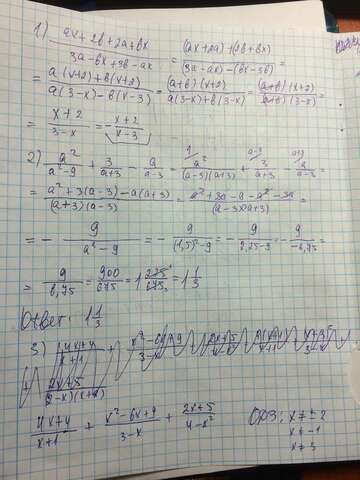 1) (ax+2b+2a+bx)/(3a-bx+3b-ax) = ((ax+2a)+(2b+bx))/((3a-ax)-(bx-3b)) =
= (a(x+2)+b(x+2))/(a(3-x)-b(x-3)) = ((a+b)(x+2))/(a(3-x)+b(3-x)) = ((a+b)(x+2))/((a+b)(3-x)) =
= (x+2)/(3-x) = -(x+2)/(x-3)
2) a²/(a²-9) + 3/(a+3) - a/(a-3) = a²/((a-3)(a+3)) + 3/(a+3) - a/(a-3) =
= (a²+3(a-3)-a(a+3))/((a+3)(a-3)) = (a²+3a-9-a²-3a)/((a-3)(a+3)) =
= - 9/(a²-9) = - 9/((1,5)²-9) = - 9/(2,25-9) = - 9/(-6,75) =
= 9/6,75 = 900/675 = 1 225/675 = 1 1/3
Ответ: 1 1/3
3)
(4x+4)/(x+1) + (x²-6x+9)/(3-x) + (2x+5)/(4-x²) ОДЗ: x≠±2
x≠-1
x≠3